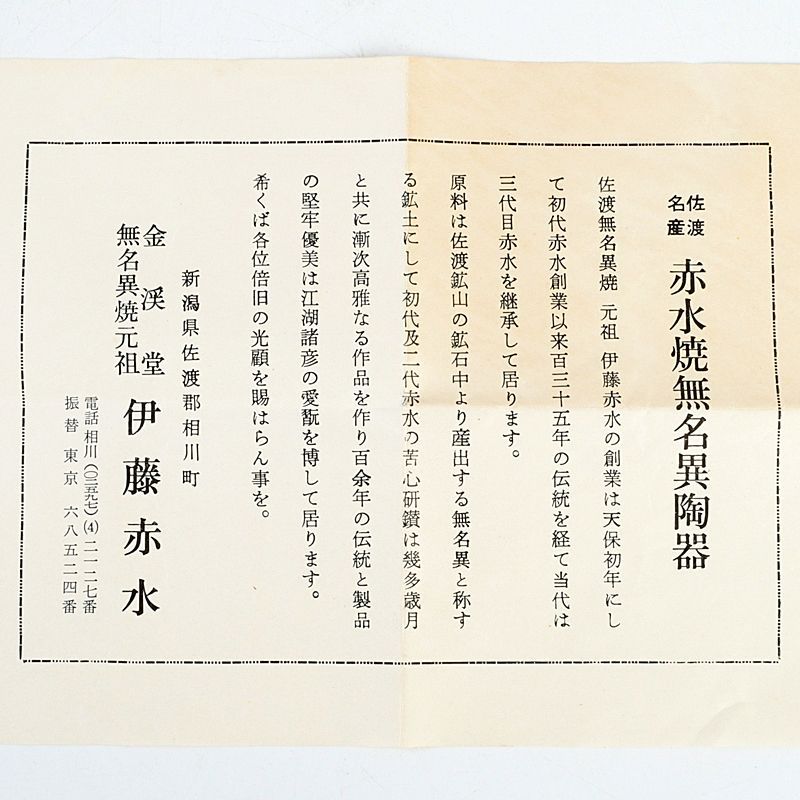 佐渡名産 赤水焼無名異陶器
佐渡無名異焼 元祖 伊藤赤水の創業は天保初年にし
て初代赤水創業以来百三十五年の伝統を経て当代は
三代目赤水を継承して居ります。
原料は佐渡鉱山の鉱石中より産出する無名異と称す
る鉱土にして初代及二代赤水の苦心研鑚は幾多歳月
と共に漸次高雅なる作品を作り百余年の伝統と製品
の堅牢優美は江湖諸彦の愛翫を博して居ります。
希くば各位倍旧の光顧を賜はらん事を。
新潟県佐渡郡相川町
金渓堂
無名異焼元祖 伊藤赤水
電話 相川(〇二五九七)(4)二一二七番
振替 東京 六八五二四番